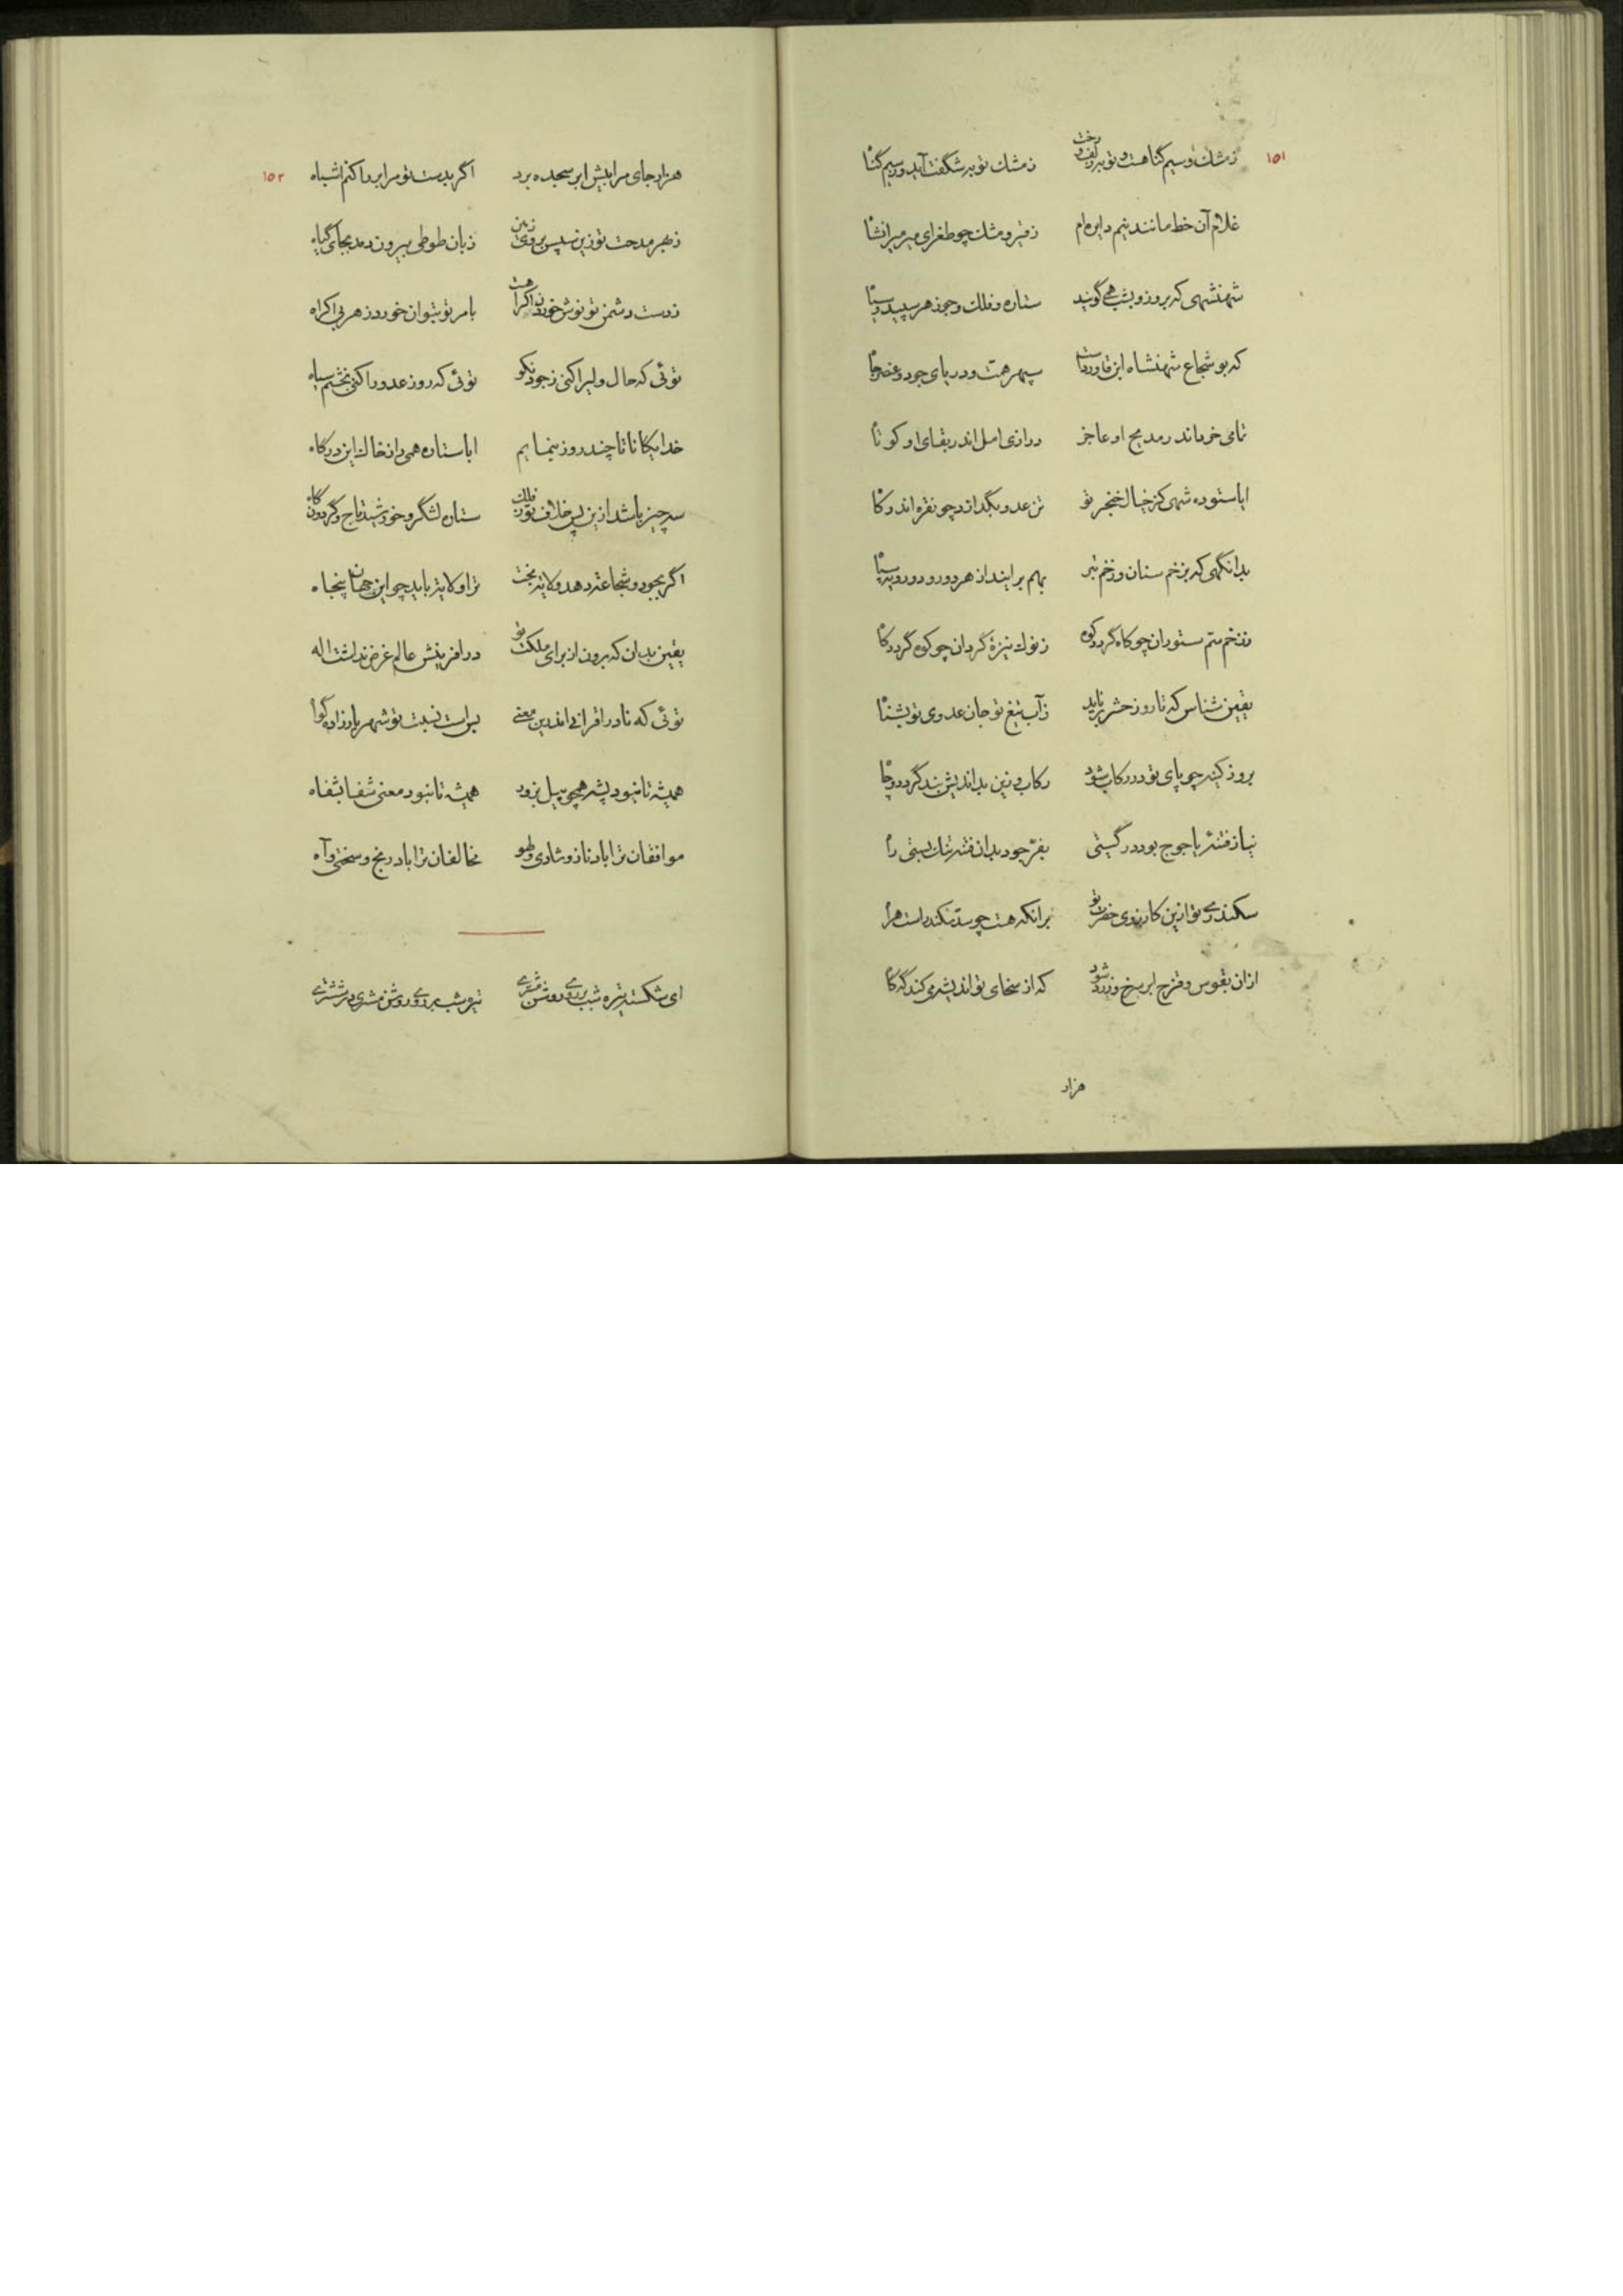 ۱۵۱
زمشک و سیم گناهست و تو بر زلف و رخت زمشک تو بر شگفت آید و ز سیم گناه
غلام آن خط مانند نیم دایره‌ام ز قیر و مشک چو طغرای میر میرانشاه
شهنشهی که بروز و بشب همی گویند ستاره و فلک و جوز هر سپید و سیاه
که بو شجاع شهنشاه ابن قاوردست سپهر همت و دریای جود و عنصر جاه
تمامی خرد اندر مدیح او عاجز درازی امل اندر بقای او کوتاه
ایا ستوده شهی کز خیال خنجر تو تن عدو بگدازد چو نقره اندر گاه
بدانگهی که بزخم سنان و زخم تبر بهم بر ایند از هر دو رو دو رویه سپاه
ززخم سم ستوران چو کاه گردد کوه زنوک نیزه گردان چو کوه گردد کاه
یقین شناس که تا روز حشر بر ناید زآب تیغ تو جان عدوی تو بشناه
بروز کینه چو پای تو در رکاب شود رکاب و زین بداندیش بند گردد و چاه
نیاز فتنه یاجوج بود در گیتی بفر جود بدان فتنه تنک بستی راه
سکندری تو ازین کار زوی حضرت تو برانکه هست چو سد سکندر است هراه
ازان بقوس و قزح ابر سرخ و زرد شود که از سخای تو اندیشه می کند گه گاه
هزار
۱۵۲
هزار جای مرا پیش ابر سجده برد اگر بدست تو مر ابر را کنم اشباه
زبهر مدحت تو زین سپس بروی زمین زبان طوطی بیرون دمد بجای گیاه
زدست دشمن تو نوش خوردن اکراهست بامر تو بتوان خورد زهر بی اکراه
توئی که حال ولی را کنی زجود نکو توئی که روز عدو را کنی بخشم سیاه
خدایگانا تا چند روز بنمایم ایا ستاره همی راند خاک این درگاه
سه چیز باشد ازین پس خلاف تو ز فلک ستاره لشگر و خورشید تاج و گردون گاه
اگر بجود و شجاعت دهد ولایت بخت ترا ولایت باید چو این جهان پنجاه
یقین بدان که برون از برای ملکت تو در افرینش عالم غرض نداشت اله
توئی که نادر اقرانی اندرین معنی بس است نسبت تو شهریار زاده گواه
همیشه تا نبود پشه همچو پیل بزور همیشه تا نبود معنی شفا بشفاه
موافقان ترا باد ناز و شادی و لهو مخالفان ترا باد رنج و سختی و آه
ای شکسته تیره شب بر روی روشن مشتری تیره شب بر روی روشن مشتری در ششتری